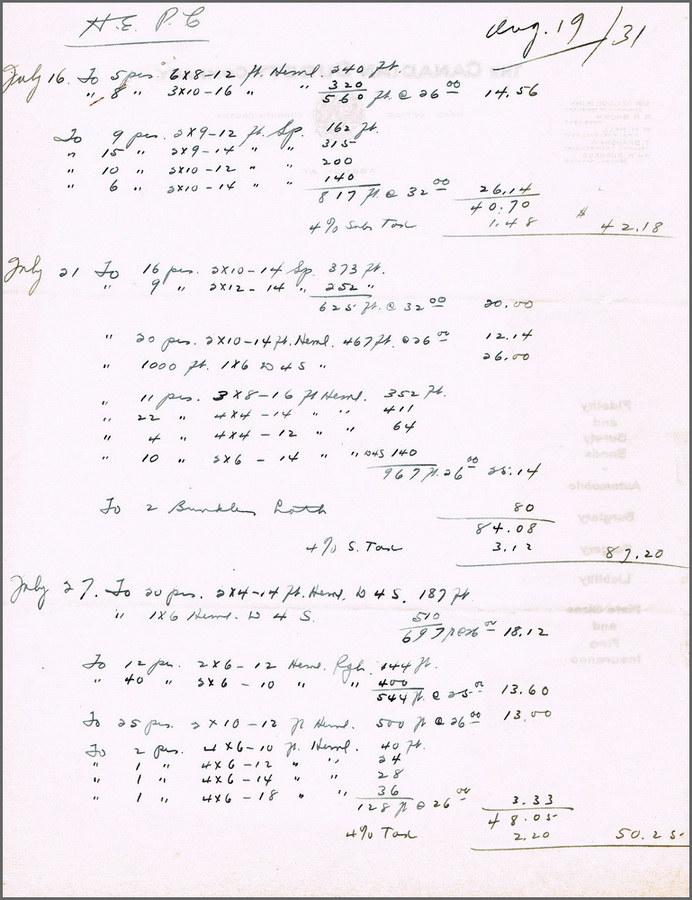 H. E. P. C
Aug. 19/31
July 16. To 5 pcs 6x8-12 ft. Heml. 240 ft.
" 8 " 3x10-16 " " 320
560 ft @ 26 00 14.56
To 9 pcs. 2x9-12 ft. Sp. 162 ft.
" 15 " 2x9-14 " " 315
" 10 " 2x10-12 " " 200
" 6 " 2x10-14 " " 140
817 ft @ 32 00 26.14
40.70
4% Sales Tax 1.48 $ 42.18
July 21 To 16 pcs. 2x10-14 Sp. 373 ft.
" 9 " 2x12-14 " 252 "
625 ft. @ 32 00 20.00
" 20 pcs. 2x10-14 ft. Heml. 467 ft. @ 26 00 12.14
" 1000 ft. 1x6 D 4 S " 26.00
" 11 pcs. 3x8-16 ft Heml. 352 ft.
" 22 " 4x4-14 " " 411
" 4 " 4x4-12 " " 64
" 10 " 2x6-14 " " D4S 140
967 ft. 26 00 25.14
To 2 Bundles Lath 80
84.08
4% S. Tax 3.12 87.20
July 27. To 20 pcs. 2x4-14 ft. Heml. D 4 S. 187 ft.
" 1x6 Heml. D 4 S. 510
697 ft @ 26 00 18.12
To 12 pcs. 2x6-12 Heml. Rgh. 144 ft.
" 40 " 2x6-10 " " 400
544 ft. @ 25 00 13.60
To 25 pcs. 2x10-12 ft Heml. 500 ft @ 26 00 13.00
To 2 pcs. 4x6-10 ft. Heml. 40 ft.
" 1 " 4x6-12 " " 24
" 1 " 4x6-14 " " 28
" 1 " 4x6-18 " " 36
128 ft @ 26 00 3.33
48.05
4% Tax 2.20 50.25
Fidelity
and
Surety
Bonds
Automobile
Burglary
Liability
Plate Glass
and
Fire
Insurance